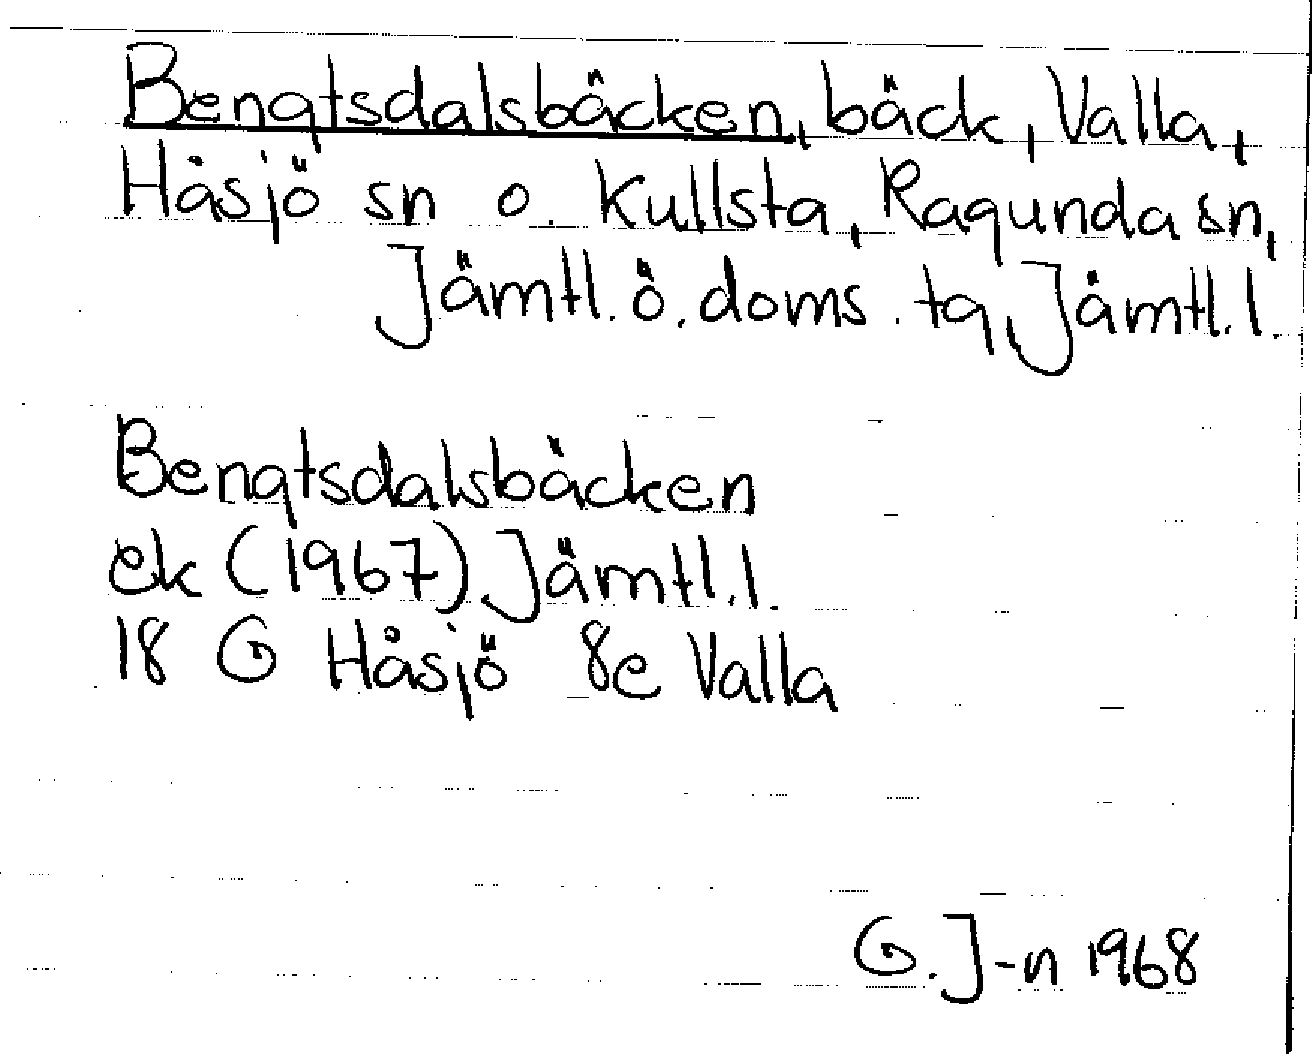 Bengtsdalsbäcken, bäck, Valla,
Håsjö sn o. Kullsta, Ragunda sn,
Jämtl. ö. doms. tg, Jämtl. l.
Bengtsdalsbäcken
ek (1967) Jämtl. l.
18 G Håsjö 8e Valla
G. J-n 1968